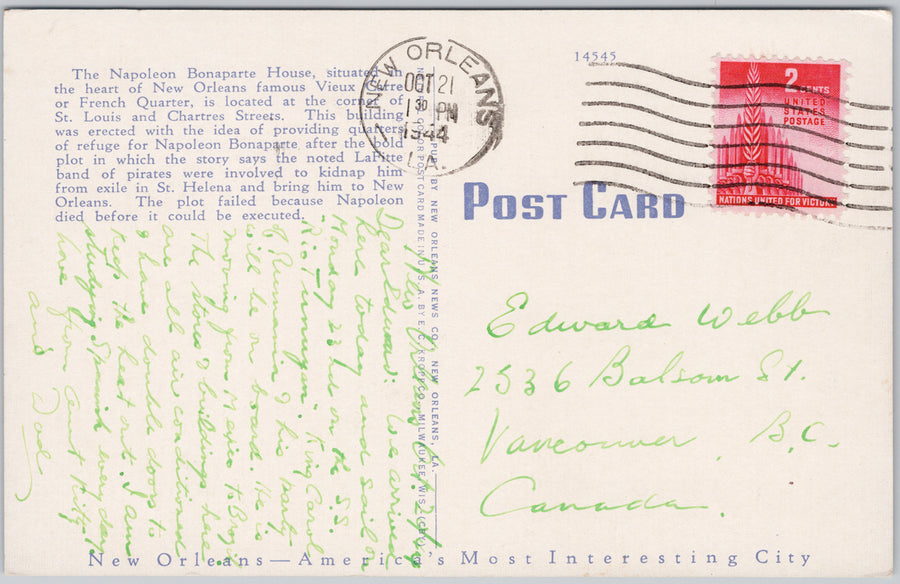 The Napoleon Bonaparte House, situated in
the heart of New Orleans famous Vieux Carre
or French Quarter, is located at the corner of
St. Louis and Chartres Streets. This building
was erected with the idea of providing quarters
of refuge for Napoleon Bonaparte after the bold
plot in which the story says the noted LaFitte
band of pirates were involved to kidnap him
from exile in St. Helena and bring him to New
Orleans. The plot failed because Napoleon
died before it could be executed.
New Orleans
Dear Edward: We arrived
here today and sail on
Monday 23 he on the S.S.
"Rio Tunuyan". King Carol
of Rumania & his party
will be on board. He is
moving from Mexico to Brazil
The stores & buildings here
are all air conditioned
& have double doors to
keep the heat out. I am
studying Spanish every day
Love from aunt Kitz
and Dad
PUB. BY NEW ORLEANS NEWS CO., NEW ORLEANS, LA.
COLOR POST CARD MADE IN U.S.A. BY E. C. KROPP CO., MILWAUKEE, WIS.
NEW ORLEANS
OCT 21
1 30 PM
1944
LA.
14545
2 CENTS
UNITED
STATES
POSTAGE
NATIONS UNITED FOR VICTORY
POST CARD
Edward Webb
2536 Balsam St.
Vancouver, B.C.
Canada.
New Orleans—America's Most Interesting City